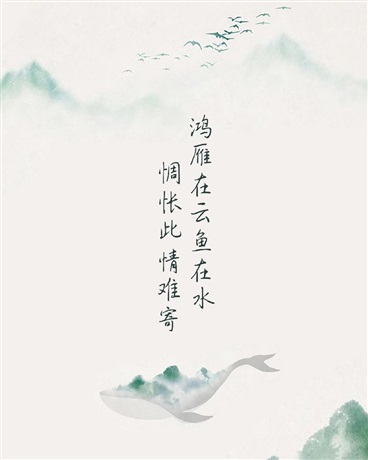 鸿雁在云鱼在水
惆怅此情难寄